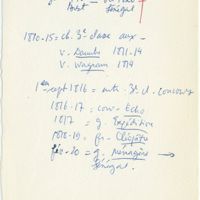 Brest Sénégal
1810-15 = ch. 3e classe aux -
v. Danube 1811-14
v. Wagram 1814
1er sept 1816 = 3e cl. Concours
1816-17 : corv. Écho
1817 = g. Expédition
1818-19 = fr. Cléopâtre
-20 = g. Ménagère →
Sénégal.